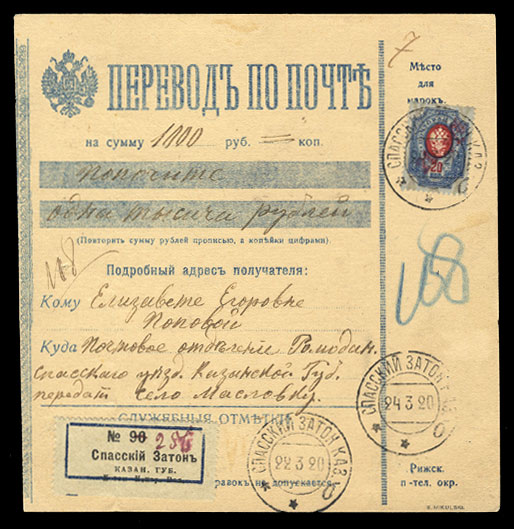 7
Мѣсто
для
марокъ.
ПЕРЕВОДЪ ПО ПОЧТѢ
20
СПАССКІЙ КАЗ
на сумму 1000 руб. = коп.
одна тысяча рублей
(Повторить сумму рублей прописью, а копѣйки цифрами).
168
168
Подробный адресъ получателя:
Кому Елизавете Егоровне
Поповой
Куда Почтовое отделение
спасскаго уезд. Казанской Губ.
передат село Масловку.
СЛУЖЕБНЫЯ ОТМѢТКИ
СПАССКИЙ ЗАТОН КАЗ
24 3 20
№ 90 286
Спасскій Затонъ
КАЗАН. ГУБ.
СПАССКИЙ ЗАТОН КАЗ
22 3 20
не допускается.
Рижск.
п-тел. окр.